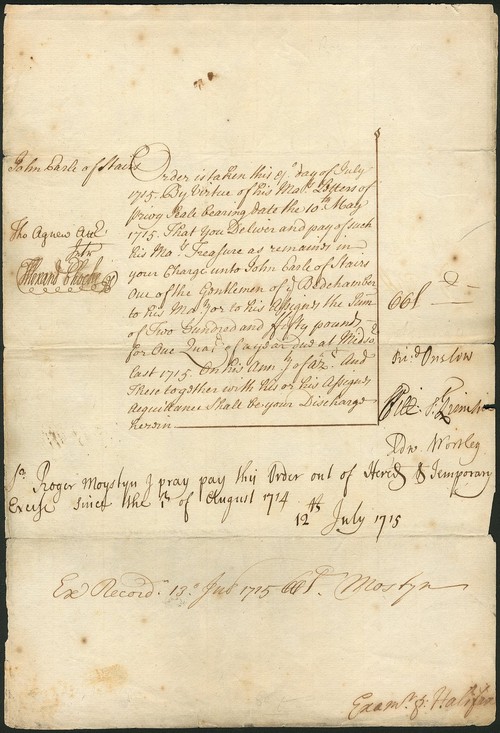 John Earle of Stairs
Order is taken this 9th day of July
1715. By Virtue of his Mats Letters of
Privy Seale bearing date the 10th May
1715. That you Deliver and pay of such
his Mats Treasure as remains in
your Charge unto John Earle of Stairs
One of the Gentlemen of ye Bedchamber
to his Maty or to his Assignes the Sum
of Two hundred and fifty pounds
for One Quar of a year due at Midsr
Last 1715. On his Ann And
These together with his or his Assignes
Acquittance Shall be your Discharge
herein
Tho Agnew
Ri: Onslow
Edw Wortley
Sr Roger Moystyn I pray pay this Order out of Hered & Temporary
Excise since the 1st of August 1714
12th July 1715
Ex Record 13 July 1715 Mostyn
Exam p Halifax